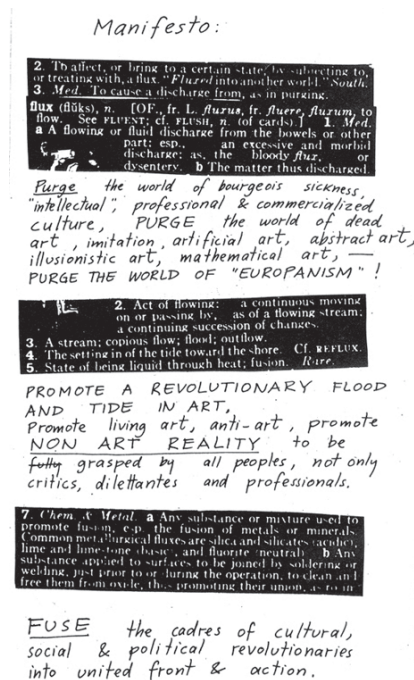 Manifesto:
2. To affect, or bring to a certain state, by subjecting to,
or treating with, a flux. "Fluxed into another world." South.
3. Med. To cause a discharge from, as in purging.
flux (flŭks), n. [OF., fr. L. fluxus, fr. fluere, fluxum, to
flow. See FLUENT; cf. FLUSH, n. (of cards).] 1. Med.
a A flowing or fluid discharge from the bowels or other
part: esp., an excessive and morbid
discharge: as, the bloody flux, or
dysentery. b The matter thus discharged.
Purge the world of bourgeois sickness,
"intellectual", professional & commercialized
culture, PURGE the world of dead
art, imitation, artificial art, abstract art,
illusionistic art, mathematical art, —
PURGE THE WORLD OF "EUROPANISM"!
2. Act of flowing: a continuous moving
on or passing by, as of a flowing stream;
a continuing succession of changes.
3. A stream; copious flow; flood; outflow.
4. The setting in of the tide toward the shore. Cf. REFLUX.
5. State of being liquid through heat; fusion. Rare.
PROMOTE A REVOLUTIONARY FLOOD
AND TIDE IN ART,
Promote living art, anti-art, promote
NON ART REALITY to be
fully grasped by all peoples, not only
critics, dilettantes and professionals.
7. Chem. & Metal. a Any substance or mixture used to
promote fusion, esp. the fusion of metals or minerals.
Common metallurgical fluxes are silica and silicates (acidic),
lime and limestone (basic), and fluorite (neutral). b Any
substance applied to surfaces to be joined by soldering or
welding, just prior to or during the operation, to clean and
free them from oxide, thus promoting their union, as rosin
FUSE the cadres of cultural,
social & political revolutionaries
into united front & action.